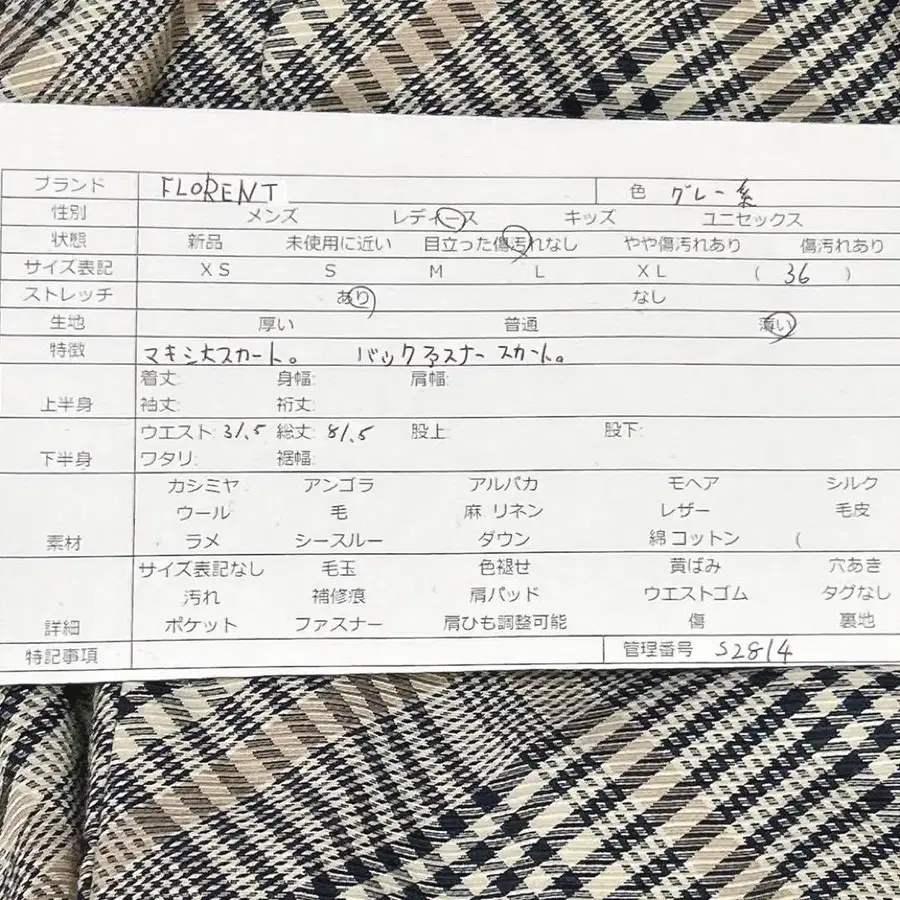 ブランド FLORENT 色 グレー系
性別 メンズ レディース キッズ ユニセックス
状態 新品 未使用に近い 目立った傷汚れなし やや傷汚れあり 傷汚れあり
サイズ表記 XS S M L XL ( 36 )
ストレッチ あり なし
生地 厚い 普通 薄い
特徴 マキシ丈スカート。 バックファスナースカート。
着丈: 身幅: 肩幅:
上半身 袖丈: 裄丈:
ウエスト: 31.5 総丈: 81.5 股上: 股下:
下半身 ワタリ: 裾幅:
カシミヤ アンゴラ アルパカ モヘア シルク
ウール 毛 麻 リネン レザー 毛皮
素材 ラメ シースルー ダウン 綿 コットン (
サイズ表記なし 毛玉 色褪せ 黄ばみ 穴あき
汚れ 補修痕 肩パッド ウエストゴム タグなし
詳細 ポケット ファスナー 肩ひも調整可能 傷 裏地
特記事項 管理番号 S2814